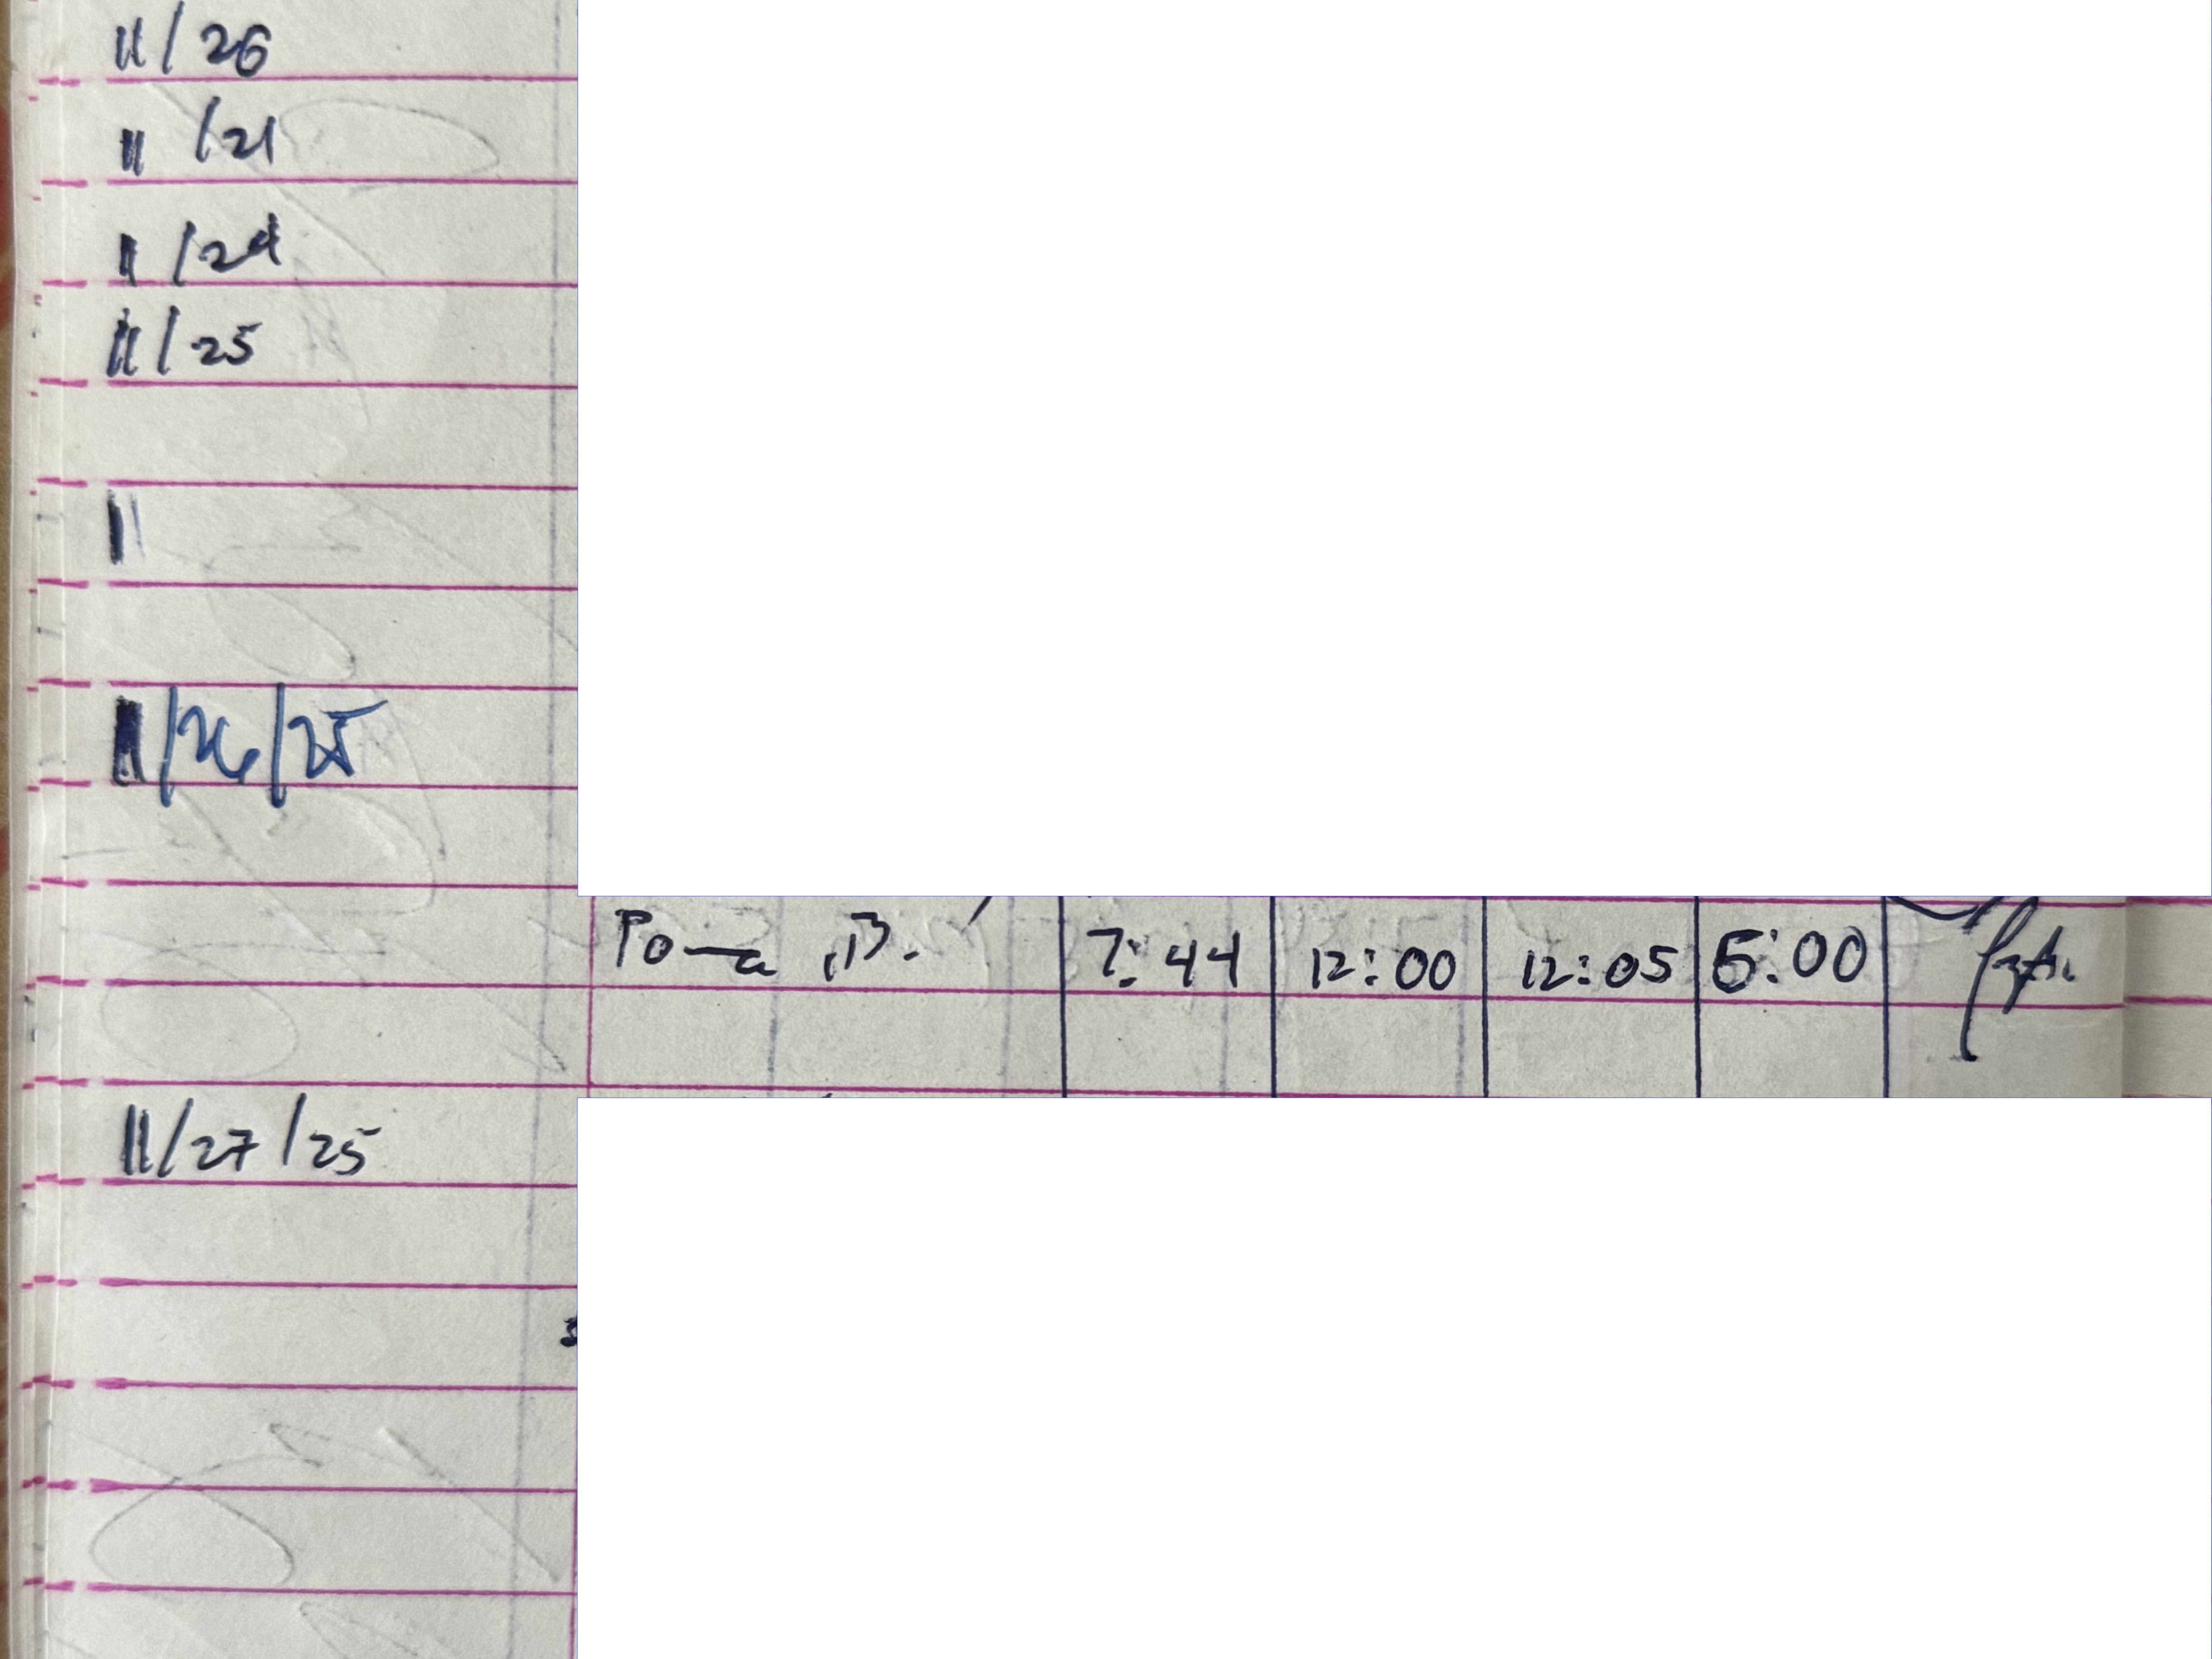 11/26
11/21
11/24
11/25
11
11/26/25
B. 7:44 12:00 12:05 5:00
11/27/25